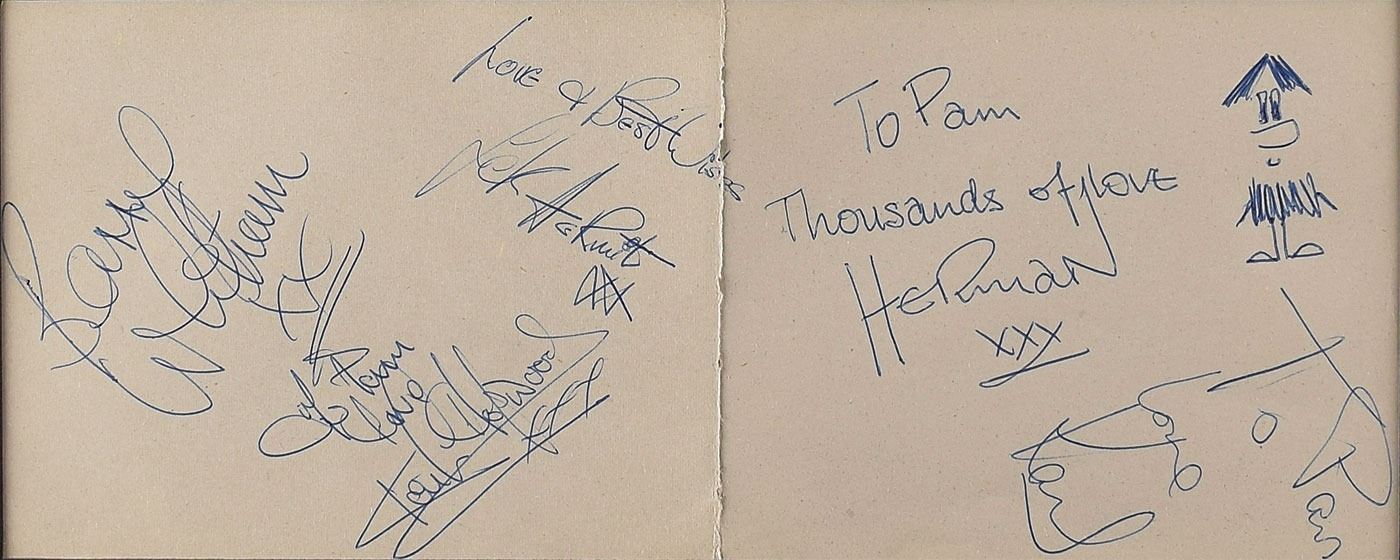 Barry
Whitwam
xx
Love & Best Wishes
Lek Hermit
xxx
To Pam
Love
Keith Hopwood
xxx
To Pam
Thousands of love
Herman
xxx
To Pam
Love
Karl